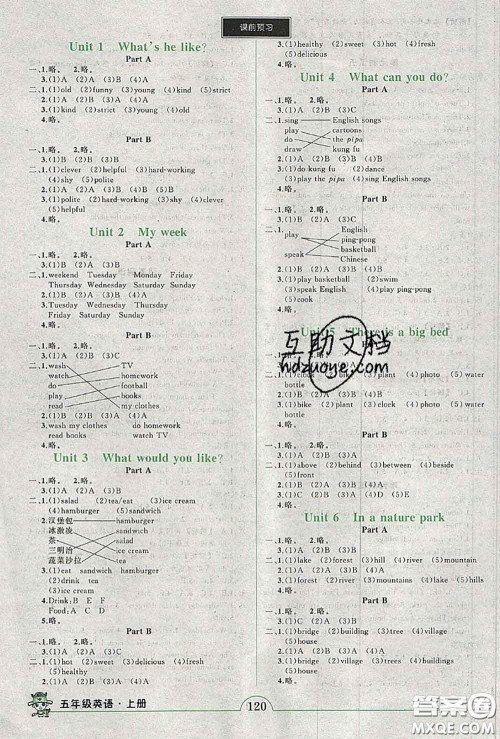 课前预习
Unit 1 What's he like?
Part A
一、1.略。 2.略。
3.(1)B (2)A (3)B (4)A
二、1.(1)old (2)funny (3)young (4)kind (5)strict
2.(1)kind (2)strict (3)old (4)young
4.略。
Part B
一、1.略。 2.略。
3.(1)B (2)B (3)B
二、1.(1)clever (2)helpful (3)hard-working
(4)shy (5)polite
2.(1)polite (2)hard-working (3)shy (4)clever
(5)helpful
Unit 2 My week
Part A
一、1.略。 2.略。
3.(1)B (2)A (3)B (4)A
二、1.weekend Tuesday Monday Thursday
Thursday Wednesday Saturday Friday
Thursday Saturday
4.略。
Part B
一、1.略。 2.略。
3.(1)A (2)B (3)C
二、1.wash TV
watch homework
do football
play books
read my clothes
3.wash my clothes do homework
read books watch TV
4.略。
Unit 3 What would you like?
Part A
一、1.略。 2.略。
3.(1)A (2)A (3)B
二、1.(1)salad (2)tea/eat (3)ice cream
(4)hamburger (5)sandwich
2.汉堡包 hamburger
冰激凌 sandwich
茶 salad
三明治 ice cream
蔬菜沙拉 tea
3.(1)eat sandwich hamburger ice cream
(2)drink tea
4.Drink: B E F
Food: A C D
Part B
一、1.略。 2.略。
3.(1)B (2)A (3)B (4)A
二、1.(1)hot (2)sweet (3)delicious
(4)fresh (5)healthy
2.(1)fresh (2)delicious (3)hot
五年级英语·上册
120
3.(1)healthy (2)sweet (3)hot (4)fresh
(5)delicious
Unit 4 What can you do?
Part A
一、1.略。 2.略。
3.(1)B (2)A (3)B
二、1.sing English songs
play cartoons
do the pipa
draw kung fu
2.(1)do kung fu (2)dance
(3)play the pipa (4)sing English songs
4.略。
Part B
一、1.略。 2.略。
二、1. English
play ping-pong
basketball
speak Chinese
3.(1)B (2)B (3)A (4)B
二、1.(1)play basketball (2)swim
(3)speak English (4)play ping-pong
(5)cook
4.略。
Unit 5 There is a big bed
bottle
2.(1)bike (2)plant (3)clock (4)photo
(5)water bottle
4.略。
Part B
一、1.略。 2.略。
二、1.(1)above (2)behind (3)between (4)beside
(5)in front of
3.(1)B (2)A (3)C (4)D (5)E
Unit 6 In a nature park
Part A
一、1.略。 2.略。
3.(1)B (2)A (3)B (4)A
二、1.(1)lake (2)forest (3)hill (4)river
(5)mountain
2.(1)forest (2)river (3)mountain (4)lake
4.略。
Part B
一、1.略。 2.略。
3.(1)A (2)B (3)B (4)A
二、1.(1)bridge (2)building (3)tree (4)village
(5)house
2.(1)bridge (2)buildings (3)trees (4)village
(5)house
互助文档
hdzuoye.com
答案圈
MXQE.COM